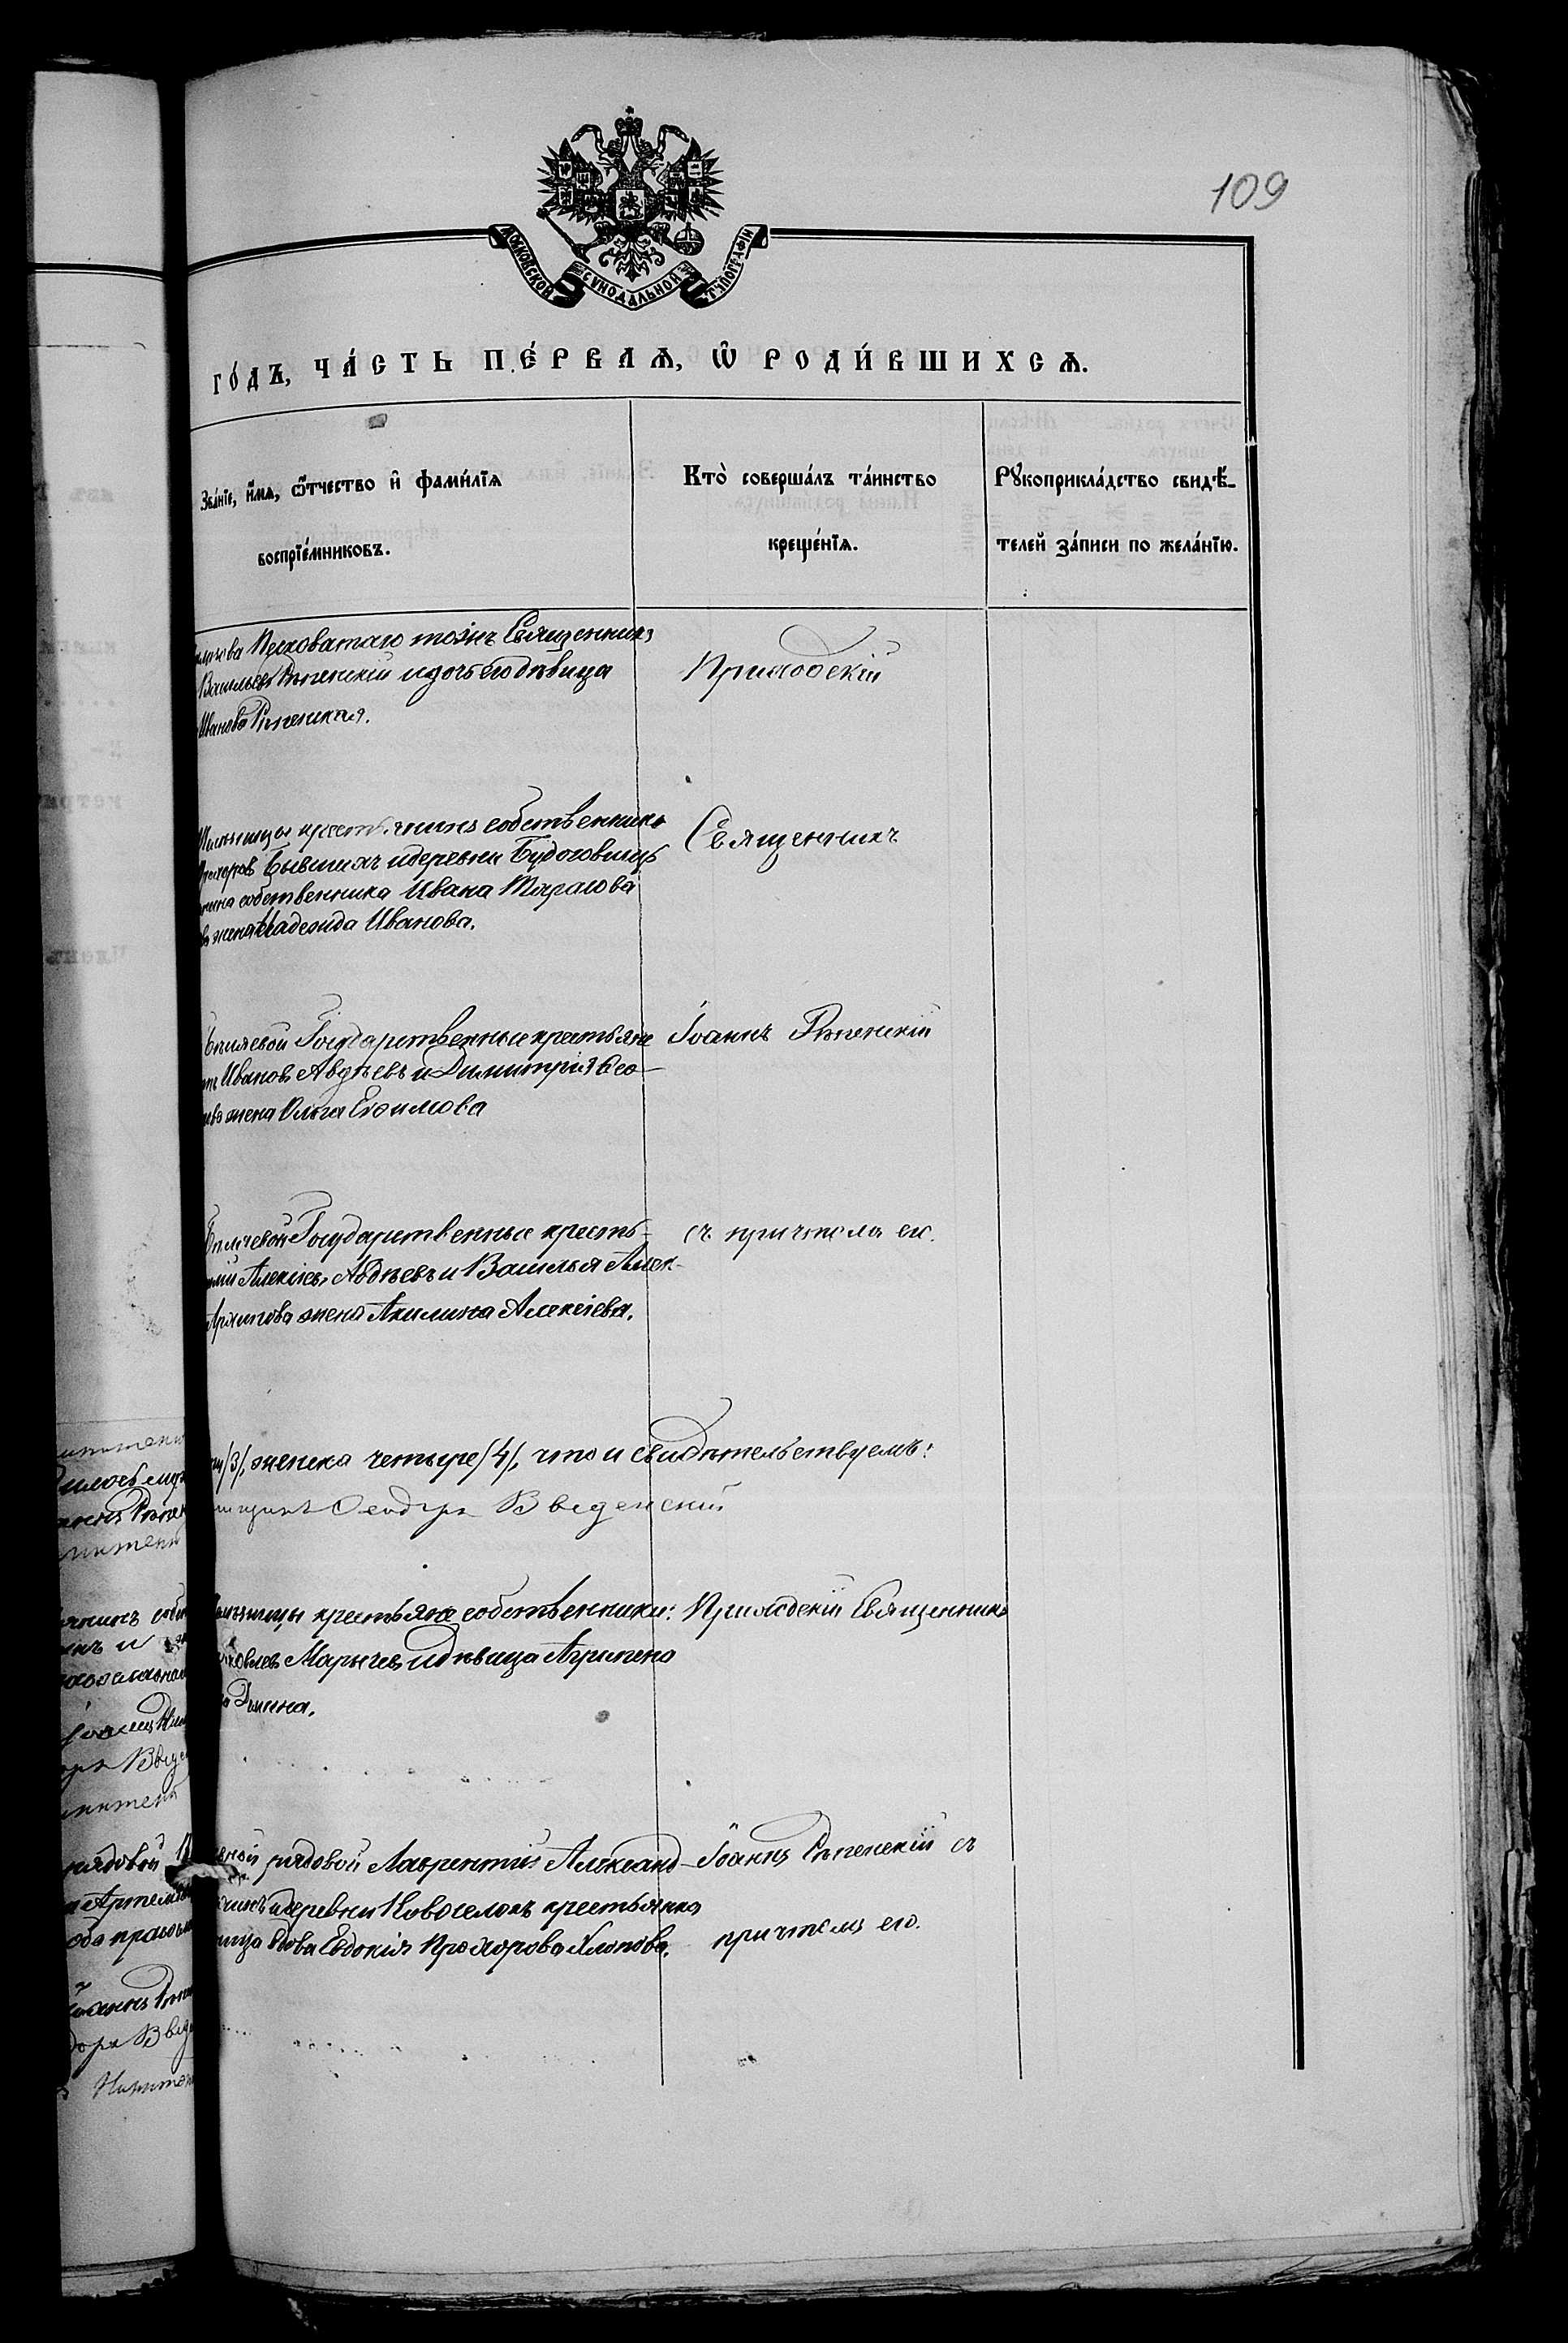 109
МОСКОВСКОЙ СѴНОДАЛЬНОЙ ТѴПОГРАФІИ
ГО́ДЪ, ЧА́СТЬ ПЕ́РВАѦ, Ѡ҆ РОДИ́ВШИХСѦ.
Зва́нїе, и҆́мѧ, ѻ҆́тчество и҆ фами́лїѧ
воспрїе́мниковъ.
Кто̀ соверша́лъ та́инство
креще́нїѧ.
Рꙋкоприкла́дство свидѣ́-
телей за́писи по жела́нїю.
Песковатаго тояжъ Священникъ
Васильевъ Рѣпенскій и дочь его дѣвица
Иванова Рѣпенская.
Приходскій
крестьянинъ собственникъ
бывшихъ и деревни Будоговищъ
собственника Ивана Тарасова
жена Надежда Иванова.
Священникъ
Государственные крестьяне
Ивановъ Авдѣевъ и Димитрія Ѳео-
жена Ольга Еѳимова
Іоаннъ Рѣпенскій
Государственные кресть-
Алексѣевъ Авдѣевъ и Василья Алек-
Архипова жена Акилина Алексѣева.
съ причтомъ его.
/3/, женска четыре /4/, что и свидѣтельствуемъ:
Ѳеодоръ Введенскій
крестьяне собственники:
Марычевъ и дѣвица Агрипена
Приходскій Священникъ
рядовой Лаврентій Александ-
и деревни Новоселокъ крестьянка
вдова Евдокія Прохорова Хлопова.
Іоаннъ Рѣпенскій съ
причтомъ его.